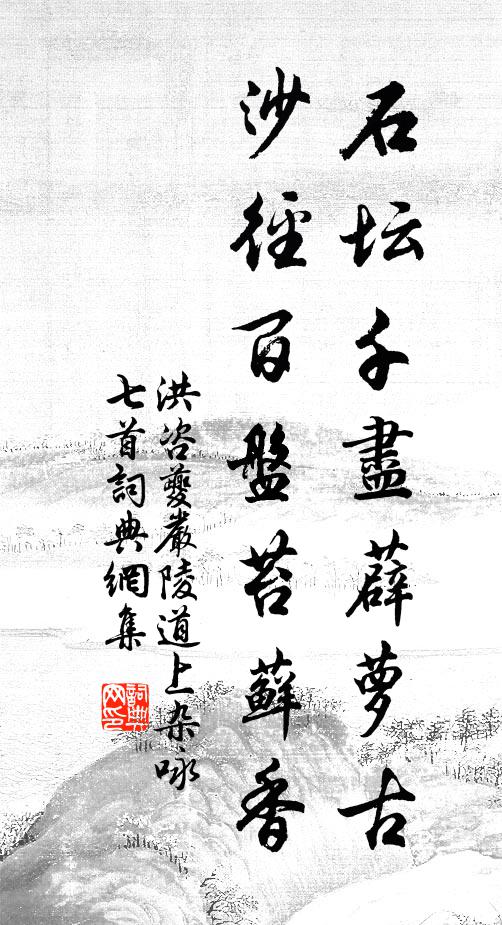 石坛千盡薜萝古
沙徑百盤苔蘚香
洪咨夔嚴陵道上杂咏
七首詞典網集
詞典网印